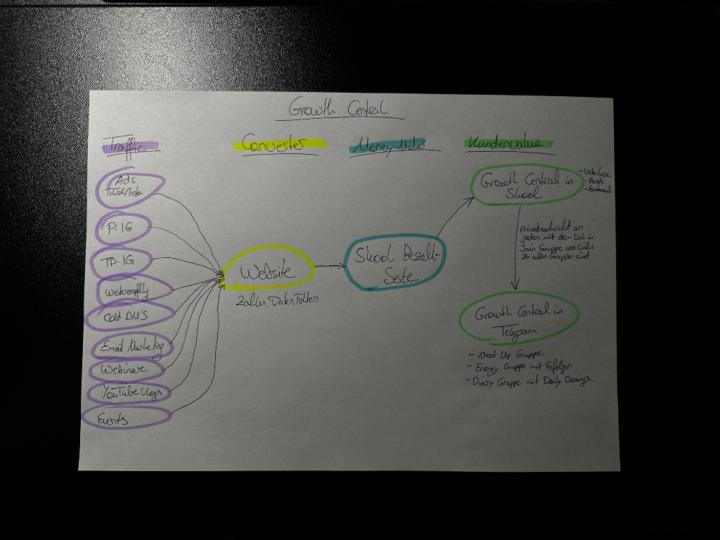 Growth Central
Traffic
Converter
Money Maker
Kundenvalue
Ads
TikTok/Insta
P. IG
TP. IG
Cold DM'S
Email Marketing
Webinare
YouTube Vlogs
Events
Website
Zahlen, Daten, Fakten
Skool Bezahl-
Seite
Growth Central in
Skool
- Posts
Privatnachricht an
jeden mit dem Link in
Join Gruppe wo Links
zu allen Gruppen sind
Growth Central in
Telegram
- Meet Up Gruppe
- Energy Gruppe mit Erfolgen
- Diary Gruppe mit Daily Doings